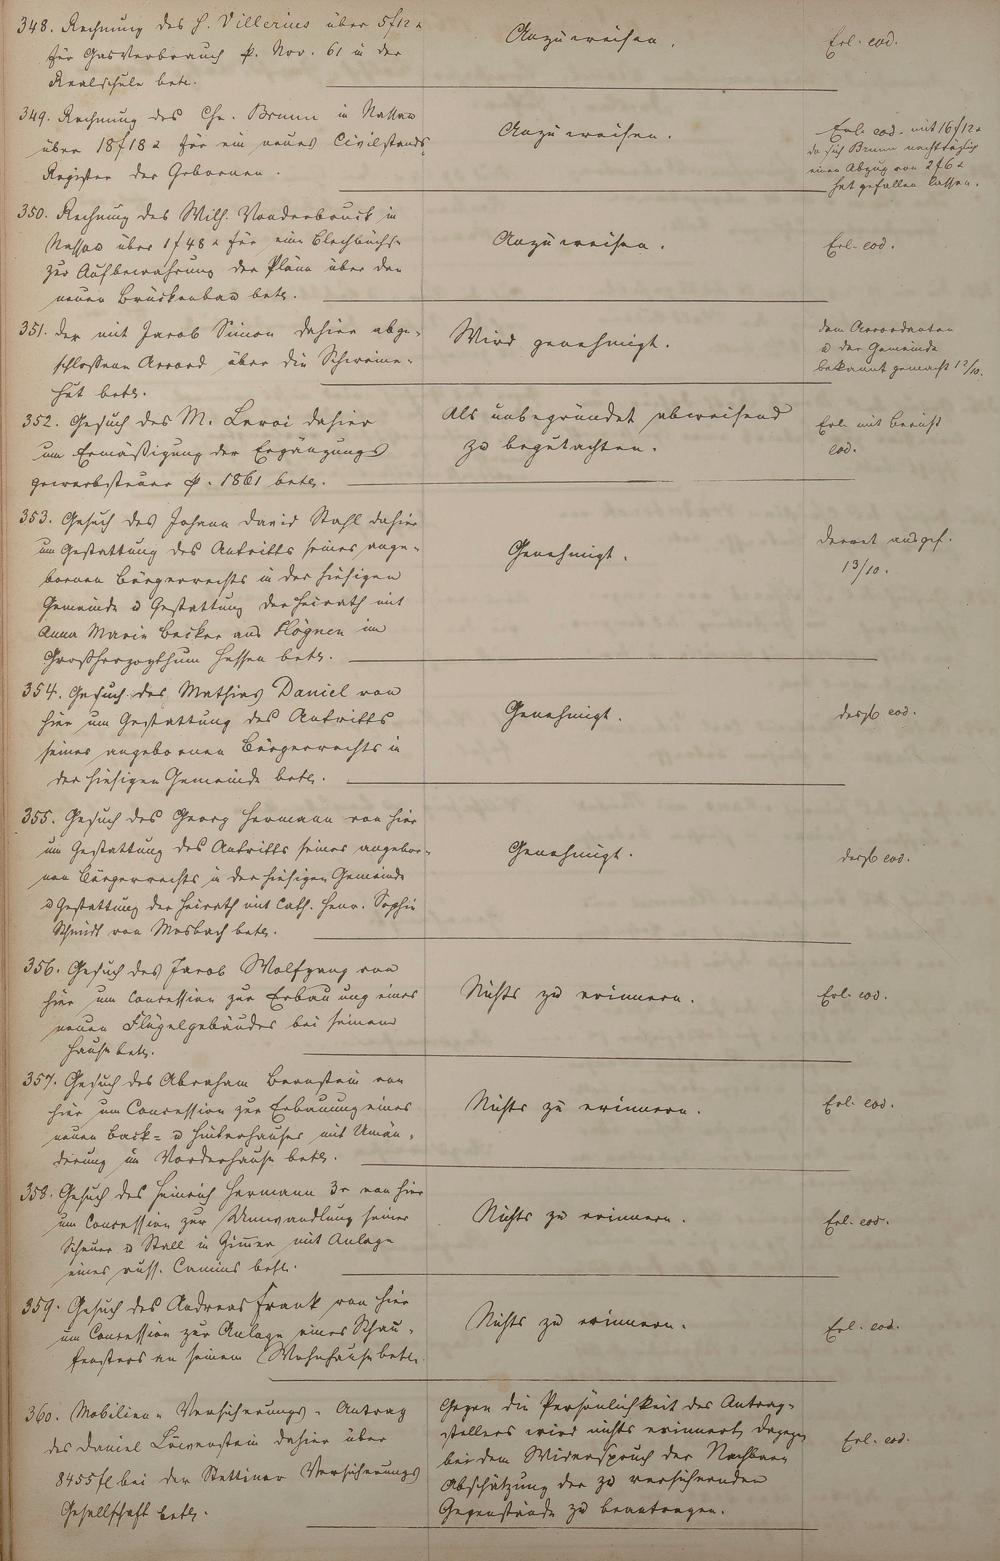 348. Rechnung des H. Villerius über 5f12x
für Gasverbrauch p. Nov. 61 in der
Realschule betr.
Anzuweisen.
Erl. eod.
349. Rechnung des Chr. Brunn in Nassau
über 18f18x für ein neues Civilstands
Register der Gebornen.
Anzuweisen.
Erl. eod. mit 16f12x
da sich Brunn nachträglich
einen Abzug von 2f6x
hat gefallen lassen.
350. Rechnung des Wilh. Vonderbruck in
Nassau über 1f48x für eine Blechbüchse
zur Aufbewahrung der Pläne über den
neuen Brückenbau betr.
Anzuweisen.
Erl. eod.
351. Der mit Jacob Simon dahier abge-
schlossene Accord über die Schweine-
hut betr.
Wird genehmigt.
dem Accordanten
u der Gemeinde
bekannt gemacht 12/10.
352. Gesuch des M. Leroi dahier
um Ermäßigung der Ergänzungs
gewerbsteuer p. 1861 betr.
Als unbegründet abweisend
zu begutachten.
Erl. mit Bericht
eod.
353. Gesuch des Johann David Stahl dahier
um Gestattung des Antritts seines ange-
bornen Bürgerrechts in der hiesigen
Gemeinde u Gestattung der Heirath mit
Anna Maria Becker aus im
Großherzogthum Hessen betr.
Genehmigt.
Decret ausgef.
13/10.
354. Gesuch des Mathias Daniel von
hier um Gestattung des Antritts
seines angebornen Bürgerrechts in
der hiesigen Gemeinde betr.
Genehmigt.
desgl. eod.
355. Gesuch des Georg Hermann von hier
um Gestattung des Antritts seines angebor-
nen Bürgerrechts in der hiesigen Gemeinde
u Gestattung der Heirath mit Cath. Henr. Sophie
Schmidt von Mosbach betr.
Genehmigt.
desgl. eod.
356. Gesuch des Jacob Wolfgang von
hier um Concession zur Erbauung eines
neuen Flügelgebäudes bei seinem
Hause betr.
Nichts zu erinnern.
Erl. eod.
357. Gesuch des Abraham Bernstein von
hier um Concession zur Erbauung eines
neuen Back- u Hinterhauses mit Umän-
derung im Vorderhause betr.
Nichts zu erinnern.
Erl. eod.
358. Gesuch des Heinrich Hermann 3r von hier
um Concession zur Umwandlung seiner
Scheuer u Stall in Zimmer mit Anlage
eines russ. Camins betr.
Nichts zu erinnern.
Erl. eod.
359. Gesuch des Andreas Frank von hier
um Concession zur Anlage eines Schau-
fensters an seinem Wohnhause betr.
Nichts zu erinnern.
Erl. eod.
360. Mobilien-Versicherungs-Antrag
des Daniel Löwenstein dahier über
8455fl bei der Stettiner Versicherungs
Gesellschaft betr.
Gegen die Persönlichkeit des Antrag-
stellers wird nichts erinnert, dagegen
bei dem Widerspruch der Nachbarn
Abschätzung der zu versichernden
Gegenstände zu beantragen.
Erl. eod.